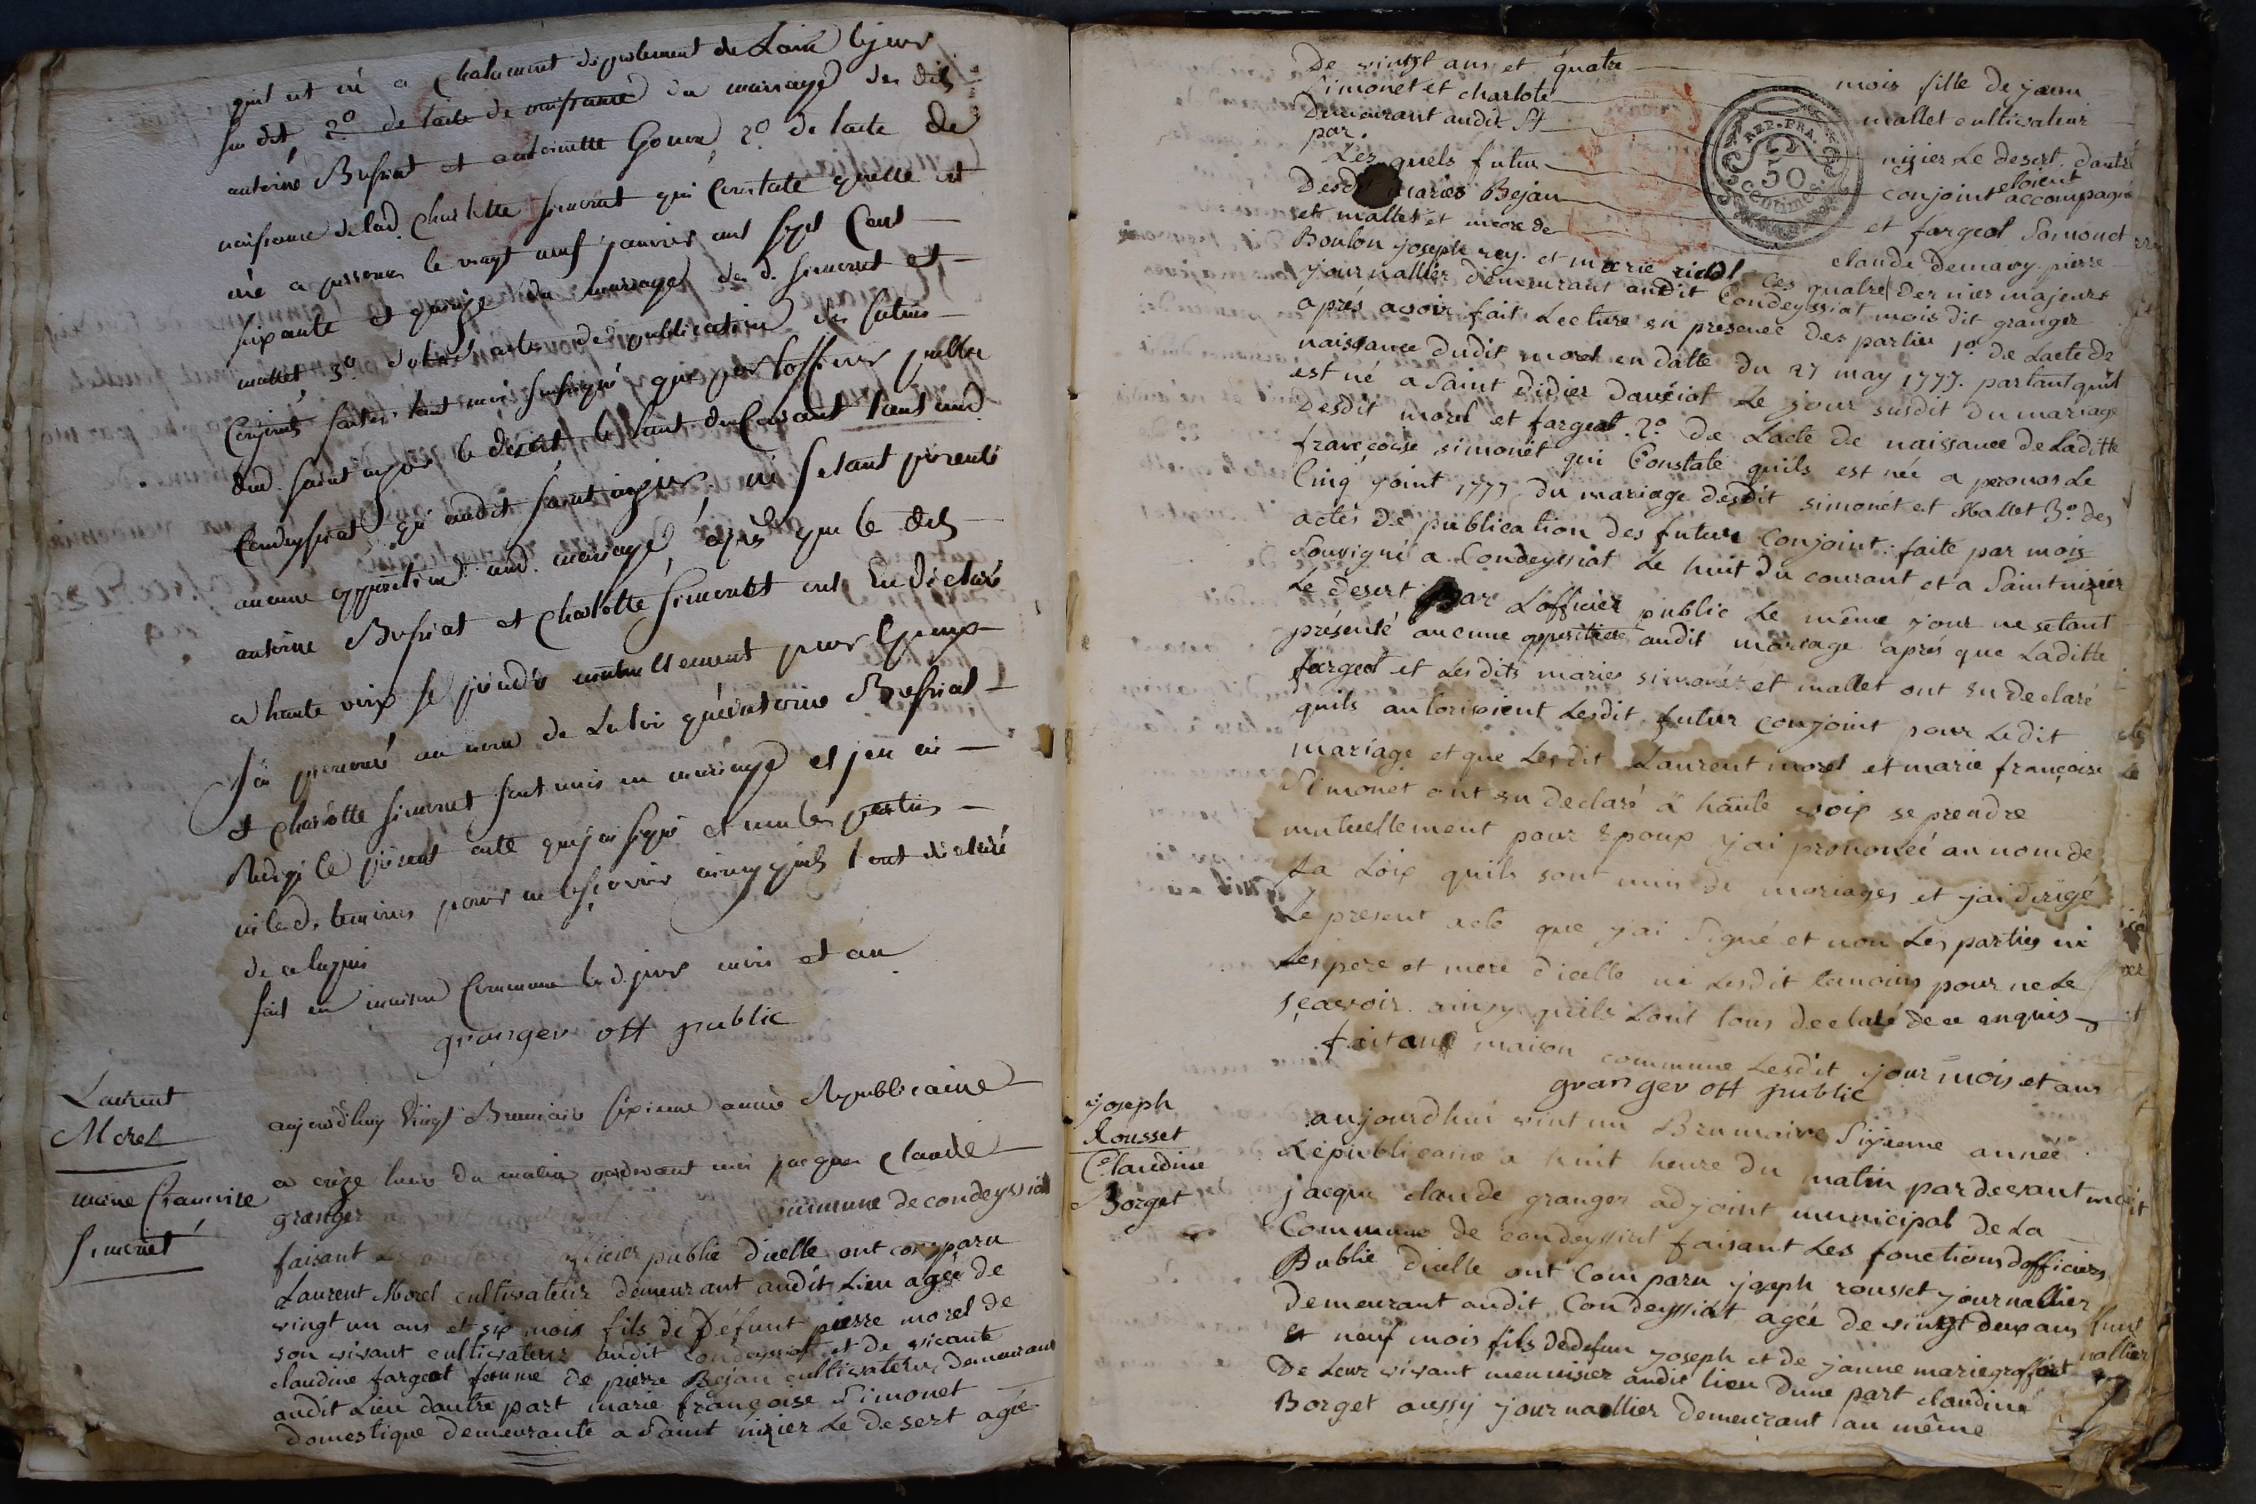 quil est né a Chalamont departement de Lain le jour
susdit, 2º de lacte de naissance du mariage des dits
antoine Bressiat et antoinette Goura 2º de lacte de
naissance de lad. Charlotte Simonet qui Constate quelle est
née a peronas le vingt neuf janvier mil sept Cent
soixante et quinze du mariage des d. Simonet et
mallet 3º des actes de publication des futurs
Conjoints faites tant moi soussigné que par lofficier public
dud. Saint nizier le désert le huit du Courant tant aud
Condeyssiat qu'audit Saint nizier, ni setant présenté
aucune opposition aud. mariage, après que le dits
antoine Bressiat et Charlotte Simonet ont Eu déclaré
a haute voix se prendre mutuellement pour Epoux
J'ai prononcé au nom de La loi qu'antoine Bressiat
et Charlotte Simonet sont unis en mariage et jen ai
Redigé le présent acte que j'ai signé et non les parties
ni les d. temoins pour ne sçavoir ainsy quils l'ont déclaré
de ce requis
fait en maison Commune led. jour mois et an
granger off public
Laurent
Morel
marie francoise
Simonet
aujourd'huy Vingt Brumaire sixieme année Republicaine
a onze heures du matin pardevant moi jacques Claude
granger commune de condeyssiat
faisant officier public dicelle ont comparu
Laurent Morel cultivateur demeurant audit Lieu agée de
vingt un ans et six mois fils de Défunt pierre morel de
son vivant cultivateur audit Condeyssiat et de vivante
claudine fargeot femme de pierre Bejan cultivateur demeurant
audit Lieu dautre part marie françoise Simonet
domestique demeurante a Saint nizier Le desert agée
De vingt ans et quatre mois fille de jean
Simonet et charlote mallet cultivateur
Demeurant audit St nizier Le desert dautre
par
Les quels futur conjoint etoient accompagné
Desdit maries Bejan et fargeot Simonet
et mallet et encore de claude demavy pierre
Boulon joseph rey et marie ces quatre dernier majeurs
journallier demeurant audit Condeyssiat mois dit granger
après avoir fait Lecture en presence des parties 1º de Lacte de
naissance dudit morel en datte du 27 may 1777. partant quil
est né a Saint didier daussiat Le jour susdit du mariage
Desdit morel et fargeot. 2º de Lacte de naissance de Laditte
françoise simonet qui Constate quils est née a peronas Le
Cinq joint 1777 du mariage desdit simonet et Mallet 3º des
actes de publication des future Conjoint faite par mois
Souvigné a Condeyssiat Le huit du courant et a Saint nizier
Le desert par Lofficier public Le même jour ne setant
présenté aucune opposition audit mariage après que Laditte
fargeot et Lesdits maries simonet et mallet ont eu declaré
quils autorisoient Lesdit futur conjoint pour Ledit
mariage et que Lesdit Laurent morel et marie françoise
Simonet ont eu declaré a haute voix se prendre
mutuellement pour Epoux j'ai prononcé au nom de
La Loix quils sont unis de mariages et j'ai dirigé
Le present acte que j'ai signé et non Les parties ni
Les pere et mere dicelle ni Lesdit temoins pour ne Le
sçavoir ainsy quils Lont tous declaré de ce enquis
fait au maison commune Lesdit jour mois et ans
granger off public
joseph
Rousset
Claudine
Borget
aujourdhui vint un Brumaire Sixieme année
Républicaine a huit heure du matin pardevant moi
jacque claude granger adjoint municipal de La
Commune de condeyssiat faisant Les fonctions dofficiers
Public dicelle ont Comparu joseph rousset journallier
demeurant audit Condeyssiat agée de vingt deux ans
et neuf mois fils de defun joseph et de janne marie graffort
De Leur vivant menuisier audit lieu dune part claudine
Borget aussy journallier demeurant au même
REP. FRA.
50
centimes